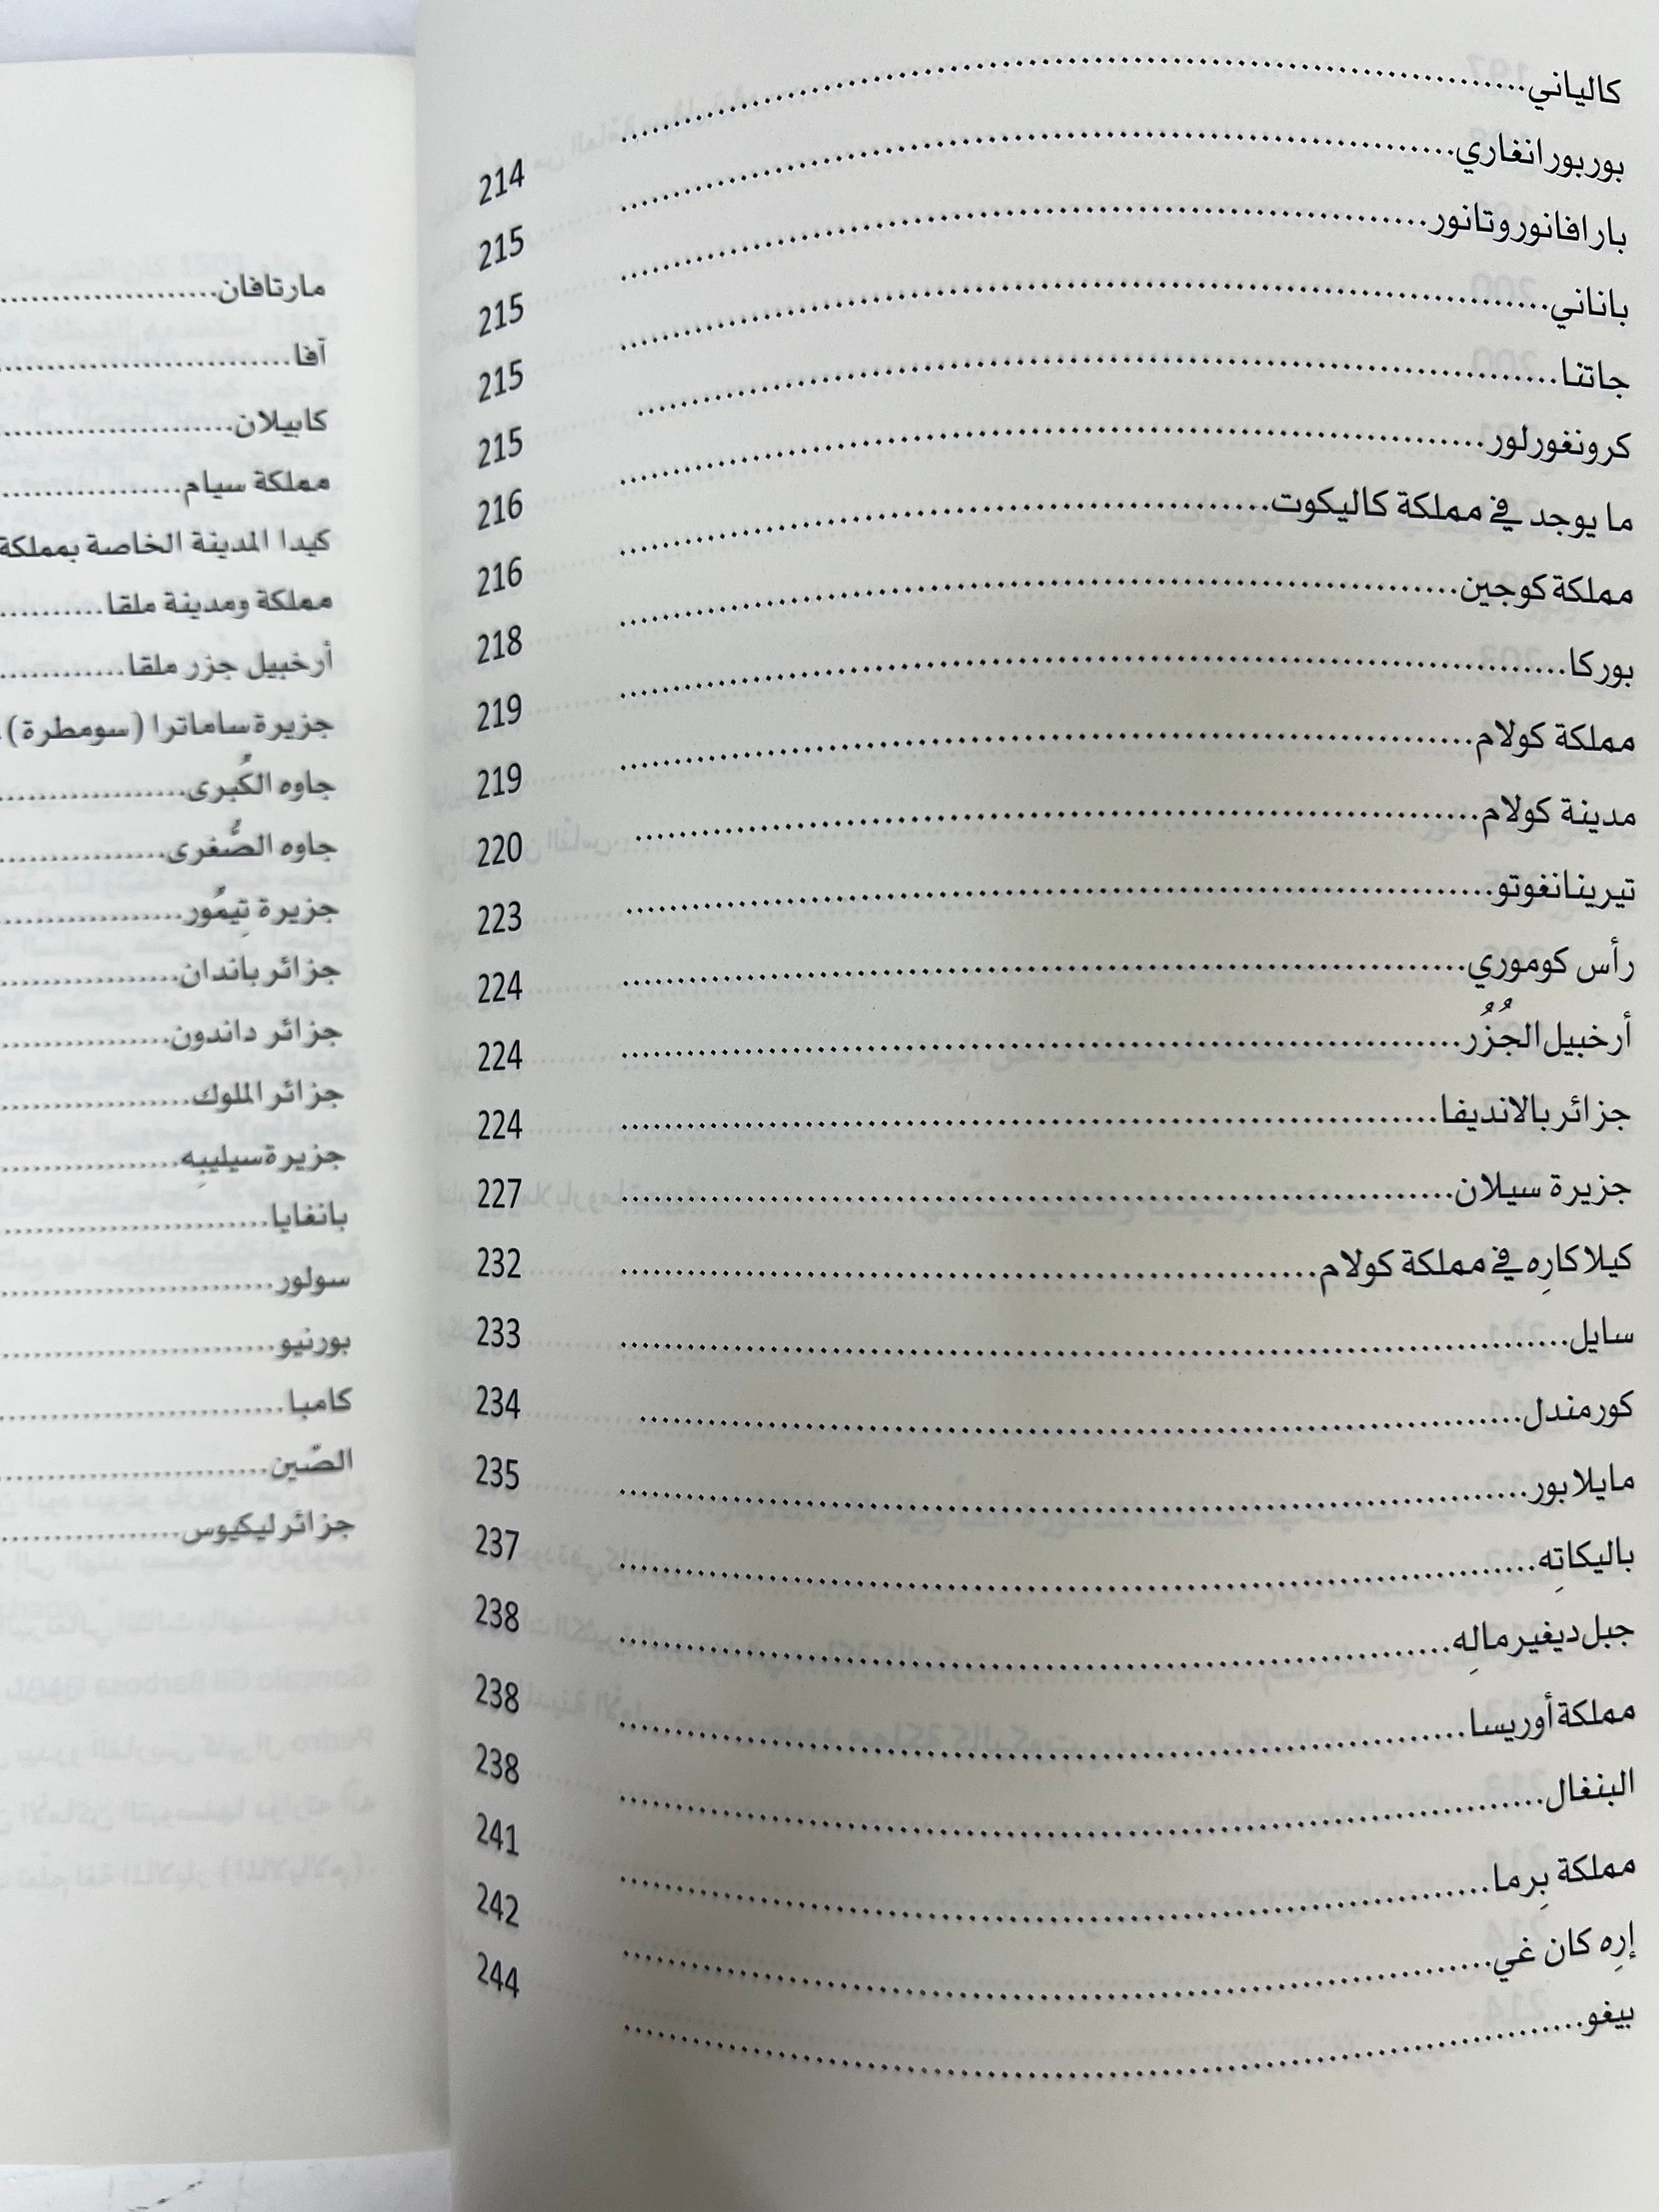 كالياني........................ 214
بوربورانغاري........................ 215
بارافانوروتانور........................ 215
باناني........................ 215
جاتنا........................ 215
كرونغورلور........................ 216
ما يوجد في مملكة كاليكوت........................ 216
مملكة كوجين........................ 218
بوركا........................ 219
مملكة كولام........................ 219
مدينة كولام........................ 220
تيرينانغوتو........................ 223
رأس كوموري........................ 224
أرخبيل الجُزُر........................ 224
جزائر بالانديفا........................ 224
جزيرة سيلان........................ 227
كيلاكارِه في مملكة كولام........................ 232
سايل........................ 233
كورمندل........................ 234
مايلابور........................ 235
باليكاتِه........................ 237
جبل ديغيرمالِه........................ 238
مملكة أوريسا........................ 238
البنغال........................ 238
مملكة بِرما........................ 241
إرِه كان غي........................ 242
بيغو........................ 244
مارتافان........................
آفا........................
كابيلان........................
مملكة سيام........................
كيدا المدينة الخاصة بمملكة
مملكة ومدينة ملقا........................
أرخبيل جزر ملقا........................
جزيرة ساماترا (سومطرة)
جاوه الكُبرى........................
جاوه الصُّغرى........................
جزيرة تِيمُور........................
جزائر باندان........................
جزائر داندون........................
جزائر الملوك........................
جزيرة سيليبِه........................
بانغايا........................
سولور........................
بورنيو........................
كامبا........................
الصّين........................
جزائر ليكيوس........................